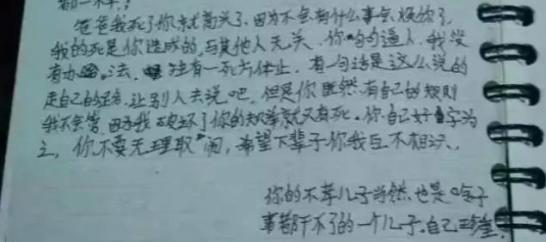 都一样！
爸爸我死了你就高兴了。因为不会有什么事会烦你了
我的死是你造成的，与其他人无关，你句句逼人，我没
有办法，唯有一死方休止，有一句话是这么说的
走自己的路，让别人去说吧，但是你既然有自己的规则
我不会管，因为我破坏了你的规则就只有死。你自己好自为
之，你不要无理取闹，希望下辈子你我互不相识。
你的不孝儿子当然也是啥子
事都干不了的一个儿子。自己